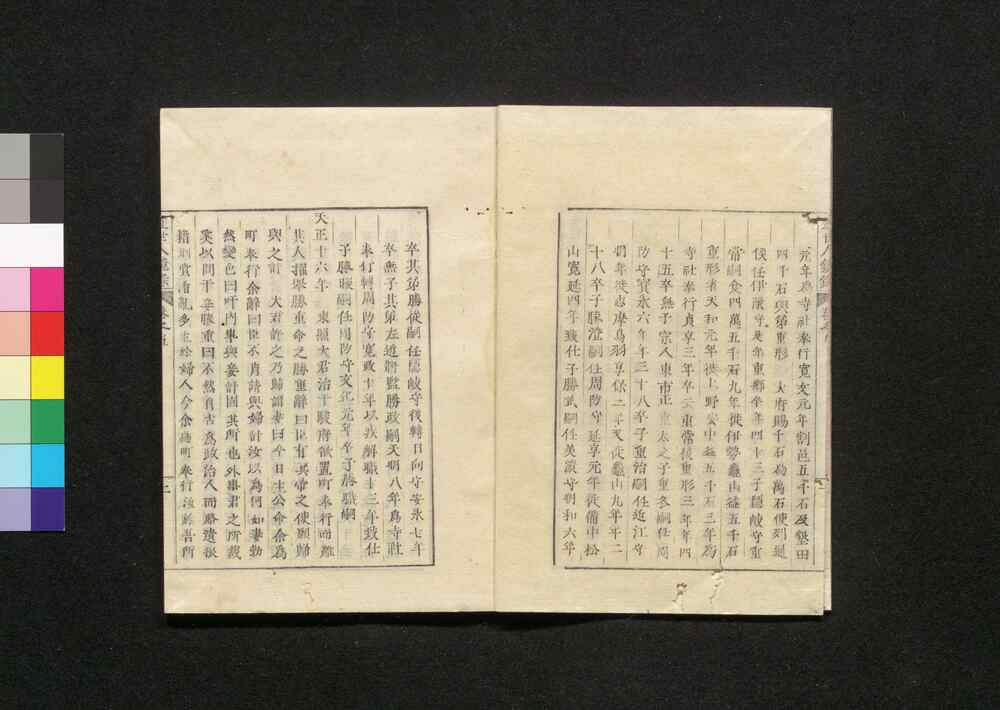 元年為寺社奉行寛文元年割邑五千石及墾田
四千石與弟重形 大府賜千石為萬石使列通
侯任伊豫守是年重郷卒年四十三子隠岐守重
常嗣食四萬五千石九年徙伊勢龜山益五千石
重形者天和元年徙上野安中益五千石三年為
寺社奉行貞享三年卒 重常後重形三年年四
十五卒無子宗人東市正重太之子重冬嗣任周
防守寳永六年年三十八卒子重治嗣任近江守
明年徙志摩鳥羽享保二年又徙龜山九年年二
十八卒子勝澄嗣任周防守延享元年徙備中松
山寛延四年致仕子勝武嗣任美濃守明和六年
卒其弟勝從嗣任隠岐守後轉日向守安永七年
卒無子其弟左近將監勝政嗣天明八年為寺社
奉行轉周防守寛政十年以我解職十三年致仕
子勝晙嗣任周防守文化元年卒子勝職嗣
天正十六年 東照大君治于駿府欲置町奉行而難
其人擢板勝重命之勝重辭曰臣有其帰之使願歸
與之計 大君許之乃歸謂妻曰今日主公命余為
町奉行余辭曰臣不肖請與婦計汝以為何如妻勃
然變色曰吁内事與妾計固其所也外事君之所裁
奚以問于妾勝重曰不然自古為政治人而賂遺㨿
措刑賞淆亂多生於婦人今余為町奉行汝於吾所